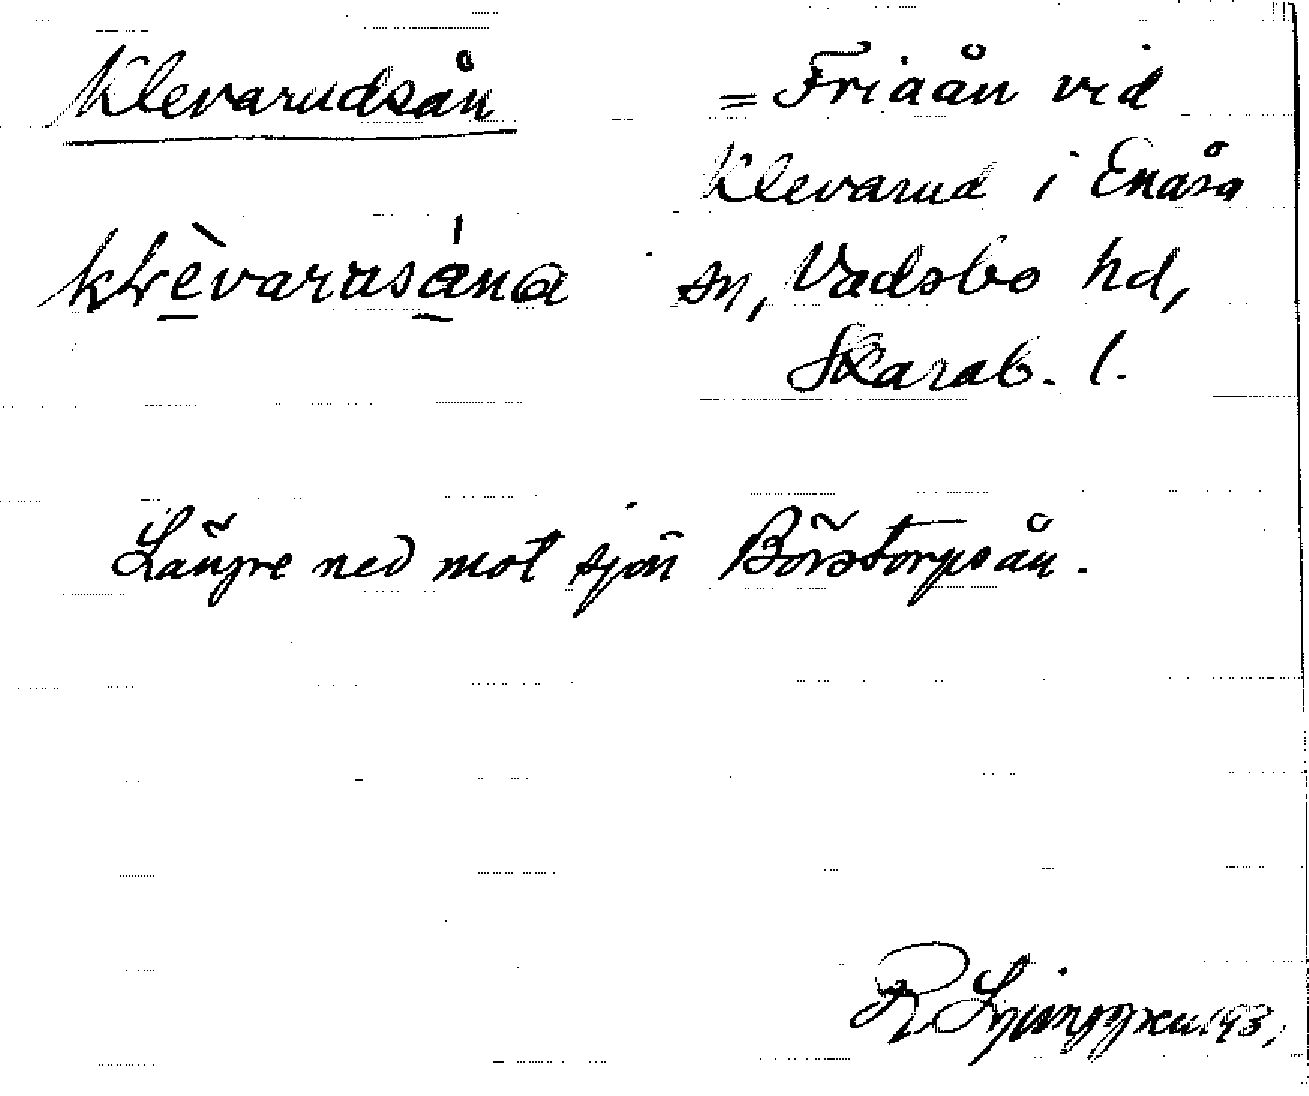 Klevarudsån
= Friaån vid
Klevarud i Enåsa
sn, Vadsbo hd,
Skarab. l.
Längre ned mot sjön Börstorpsån.
R Ljunggren 193